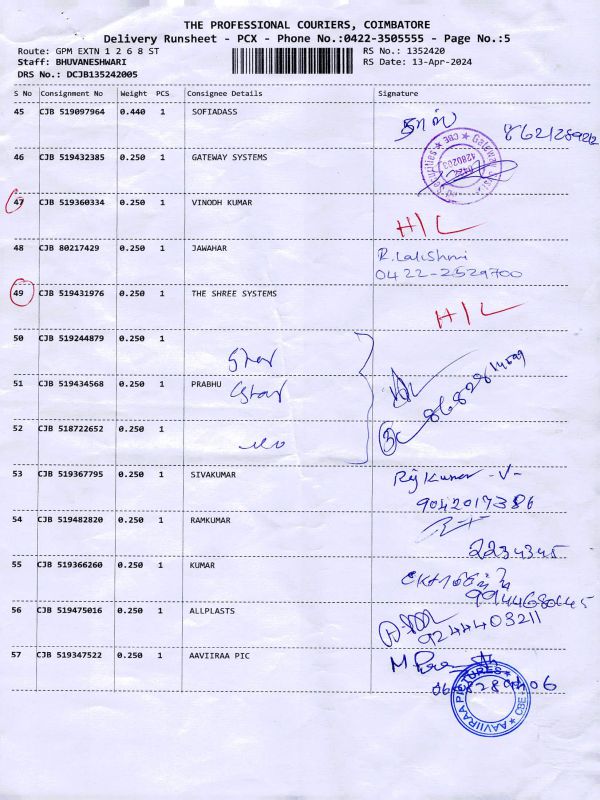 THE PROFESSIONAL COURIERS, COIMBATORE
Delivery Runsheet - PCX - Phone No.:0422-3505555 - Page No.:5
Route: GPM EXTN 1 2 6 8 ST RS No.: 1352420
Staff: BHUVANESHWARI RS Date: 13-Apr-2024
DRS No.: DCJB135242005
S No Consignment No Weight PCS Consignee Details Signature
45 CJB 519097964 0.440 1 SOFIADASS
46 CJB 519432385 0.250 1 GATEWAY SYSTEMS
47 CJB 519360334 0.250 1 VINODH KUMAR
H/L
48 CJB 80217429 0.250 1 JAWAHAR
R. Lakshmi
0422-2529700
49 CJB 519431976 0.250 1 THE SHREE SYSTEMS
H/L
50 CJB 519244879 0.250 1
51 CJB 519434568 0.250 1 PRABHU
52 CJB 518722652 0.250 1
53 CJB 519367795 0.250 1 SIVAKUMAR
Raj Kumar -V-
9042017386
54 CJB 519482820 0.250 1 RAMKUMAR
2234345
55 CJB 519366260 0.250 1 KUMAR
56 CJB 519475016 0.250 1 ALLPLASTS
9244403211
57 CJB 519347522 0.250 1 AAVIIRAA PIC
AAVIIRAA PICTURES CBE